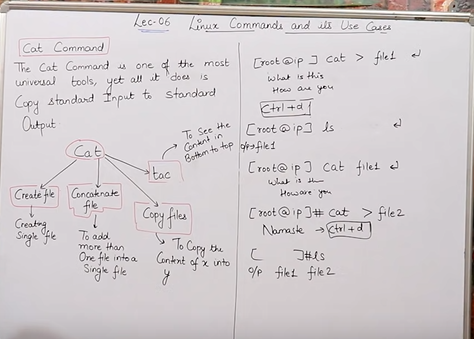 Lec-06 Linux Commands and its Use Cases
Cat Command
The Cat Command is one of the most
universal tools, yet all it does is
Copy standard Input to Standard
Output.
Cat
Create file
Creating
Single file
Concatenate
file
To add
more than
One file into a
Single file
Copy files
To Copy the
Content of x into
y
tac
To See the
Content in
Bottom to top
[root@ip ] cat > file1 ↵
What is this
How are you
Ctrl+d
[root@ip ] ls ↵
o/p→file1
[root@ip ] Cat file1 ↵
What is th
How are you
[root@ip ]# cat > file2
Namaste → Ctrl+d
[ ]#ls
o/p file1 file2